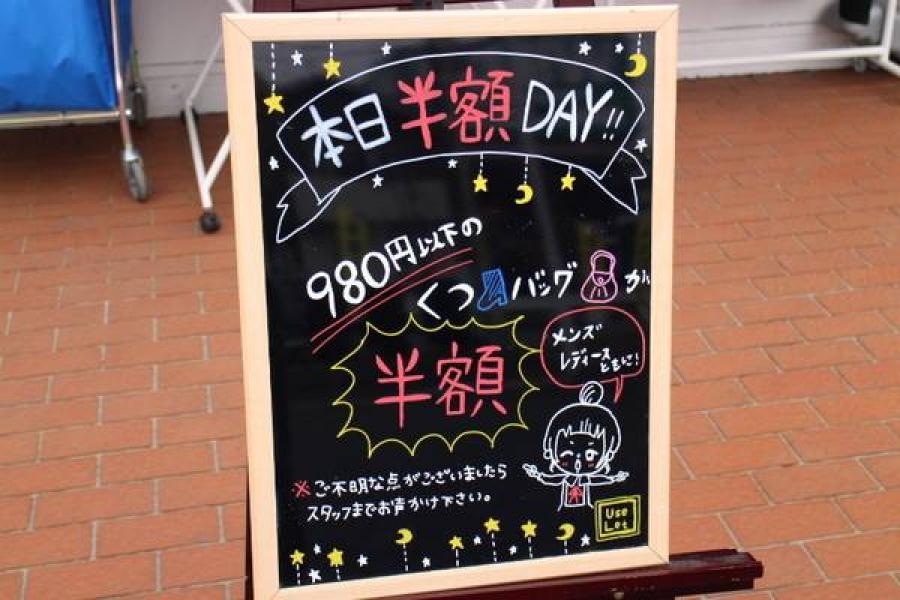 本日半額DAY!!
980円以下の
くつ バッグ が
半額
メンズ
レディース
ともに!
※ご不明な点がございましたら
スタッフまでお声かけ下さい。
Use
Let